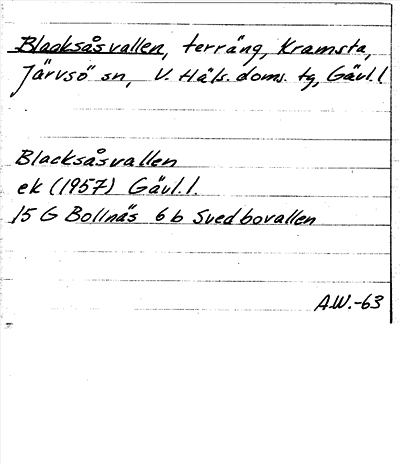 Blacksåsvallen, terräng, Kramsta,
Järvsö sn, V. Häls. doms. tg, Gävl.l
Blacksåsvallen
ek (1957) Gävl.l.
15 G Bollnäs 6 b Svedbovallen
A.W.-63